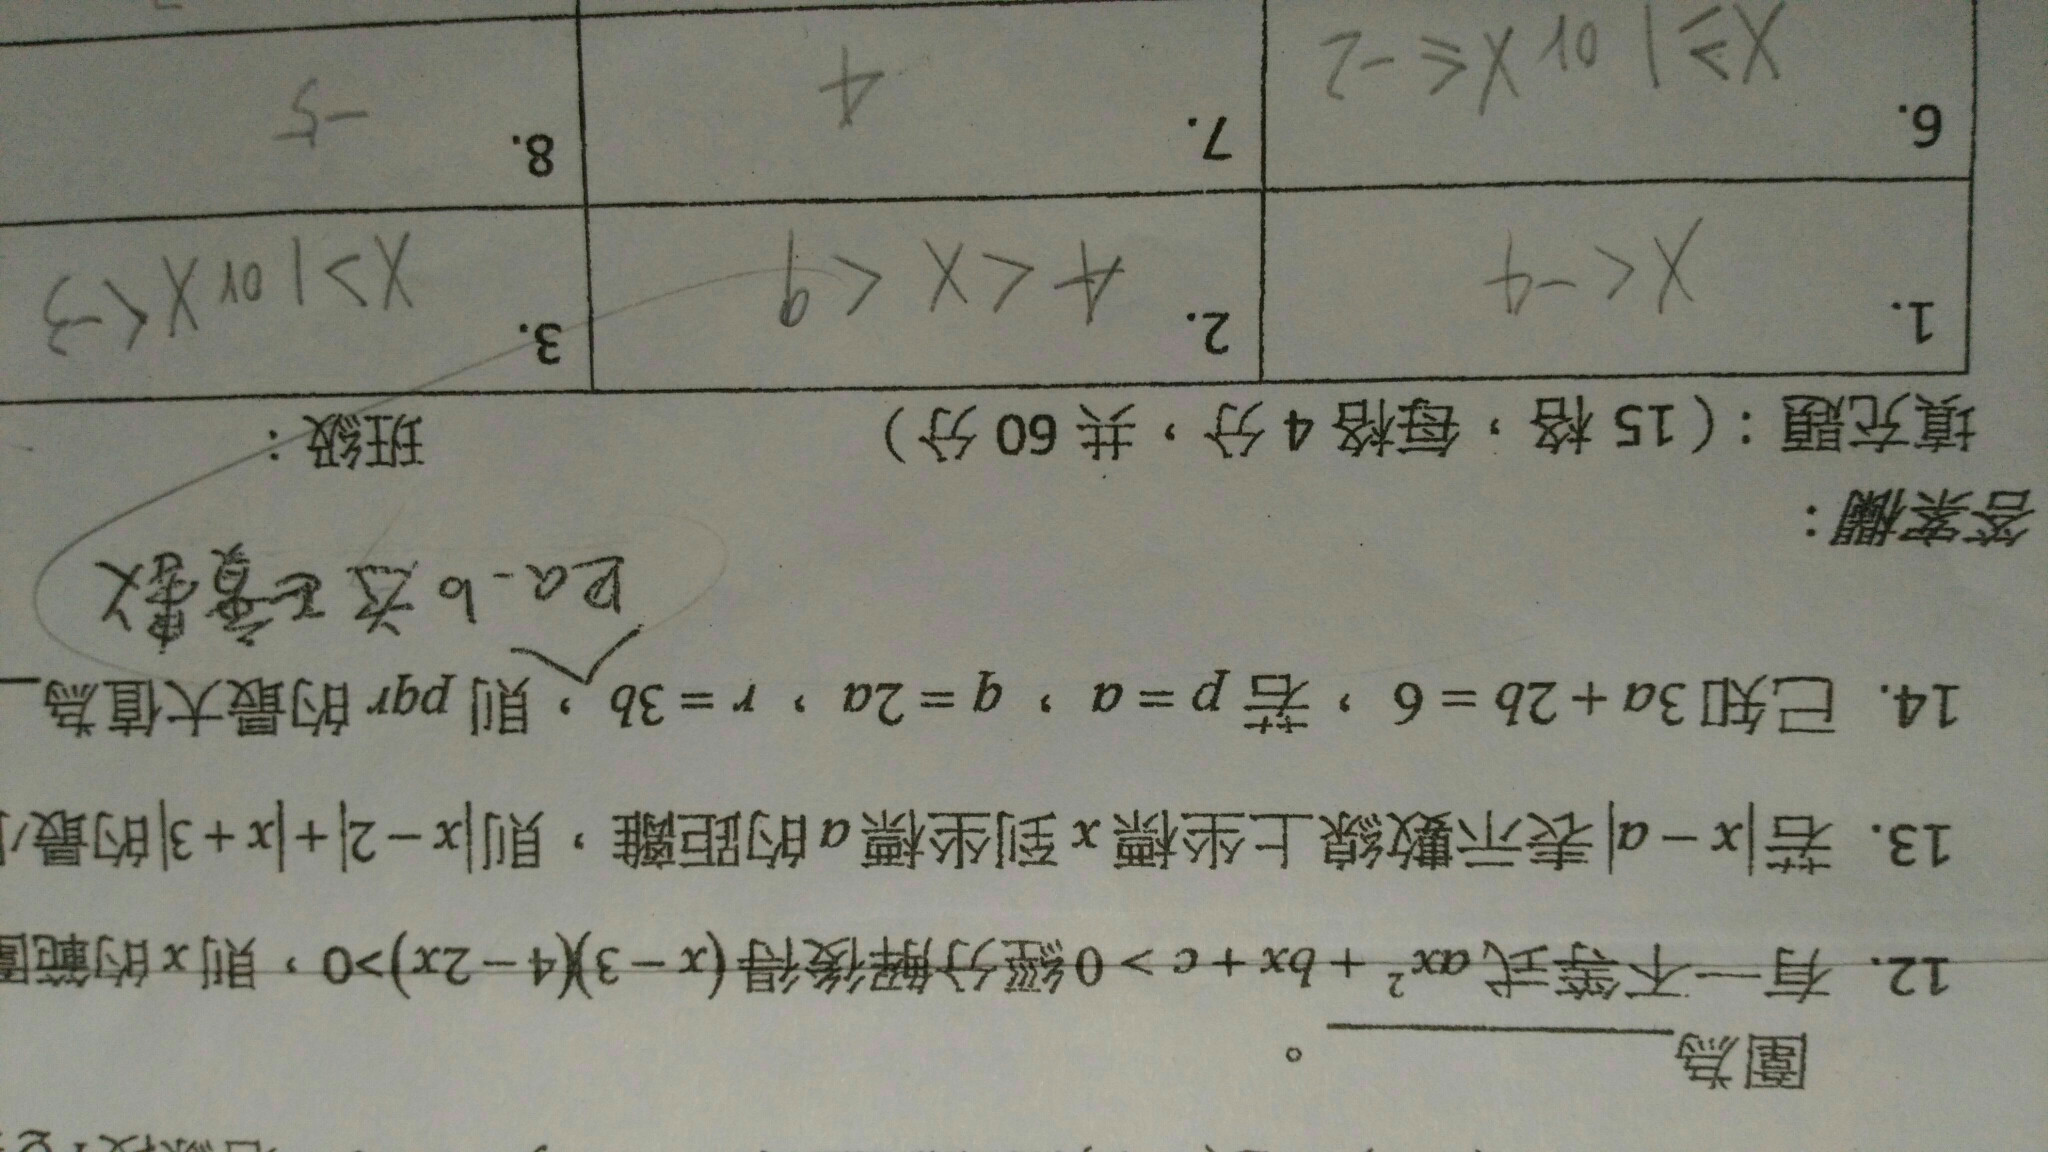 圍為
。
12. 有一不等式 ax² + bx + c > 0 經分解後得 (x − 3)(4 − 2x)>0,則 x 的範圍
13. 若 |x − a| 表示數線上坐標 x 到坐標 a 的距離,則 |x − 2| + |x + 3| 的最
14. 已知 3a + 2b = 6,若 p = a,q = 2a,r = 3b,則 pqr 的最大值為
a、b
答案欄:
填充題:(15 格,每格 4 分,共 60 分) 班級:
1. x < -4 2. 4 < x < 9 3. x > 1 or x < -3
6. x ≥ 1 or x ≤ -2 7. 4 8. -5